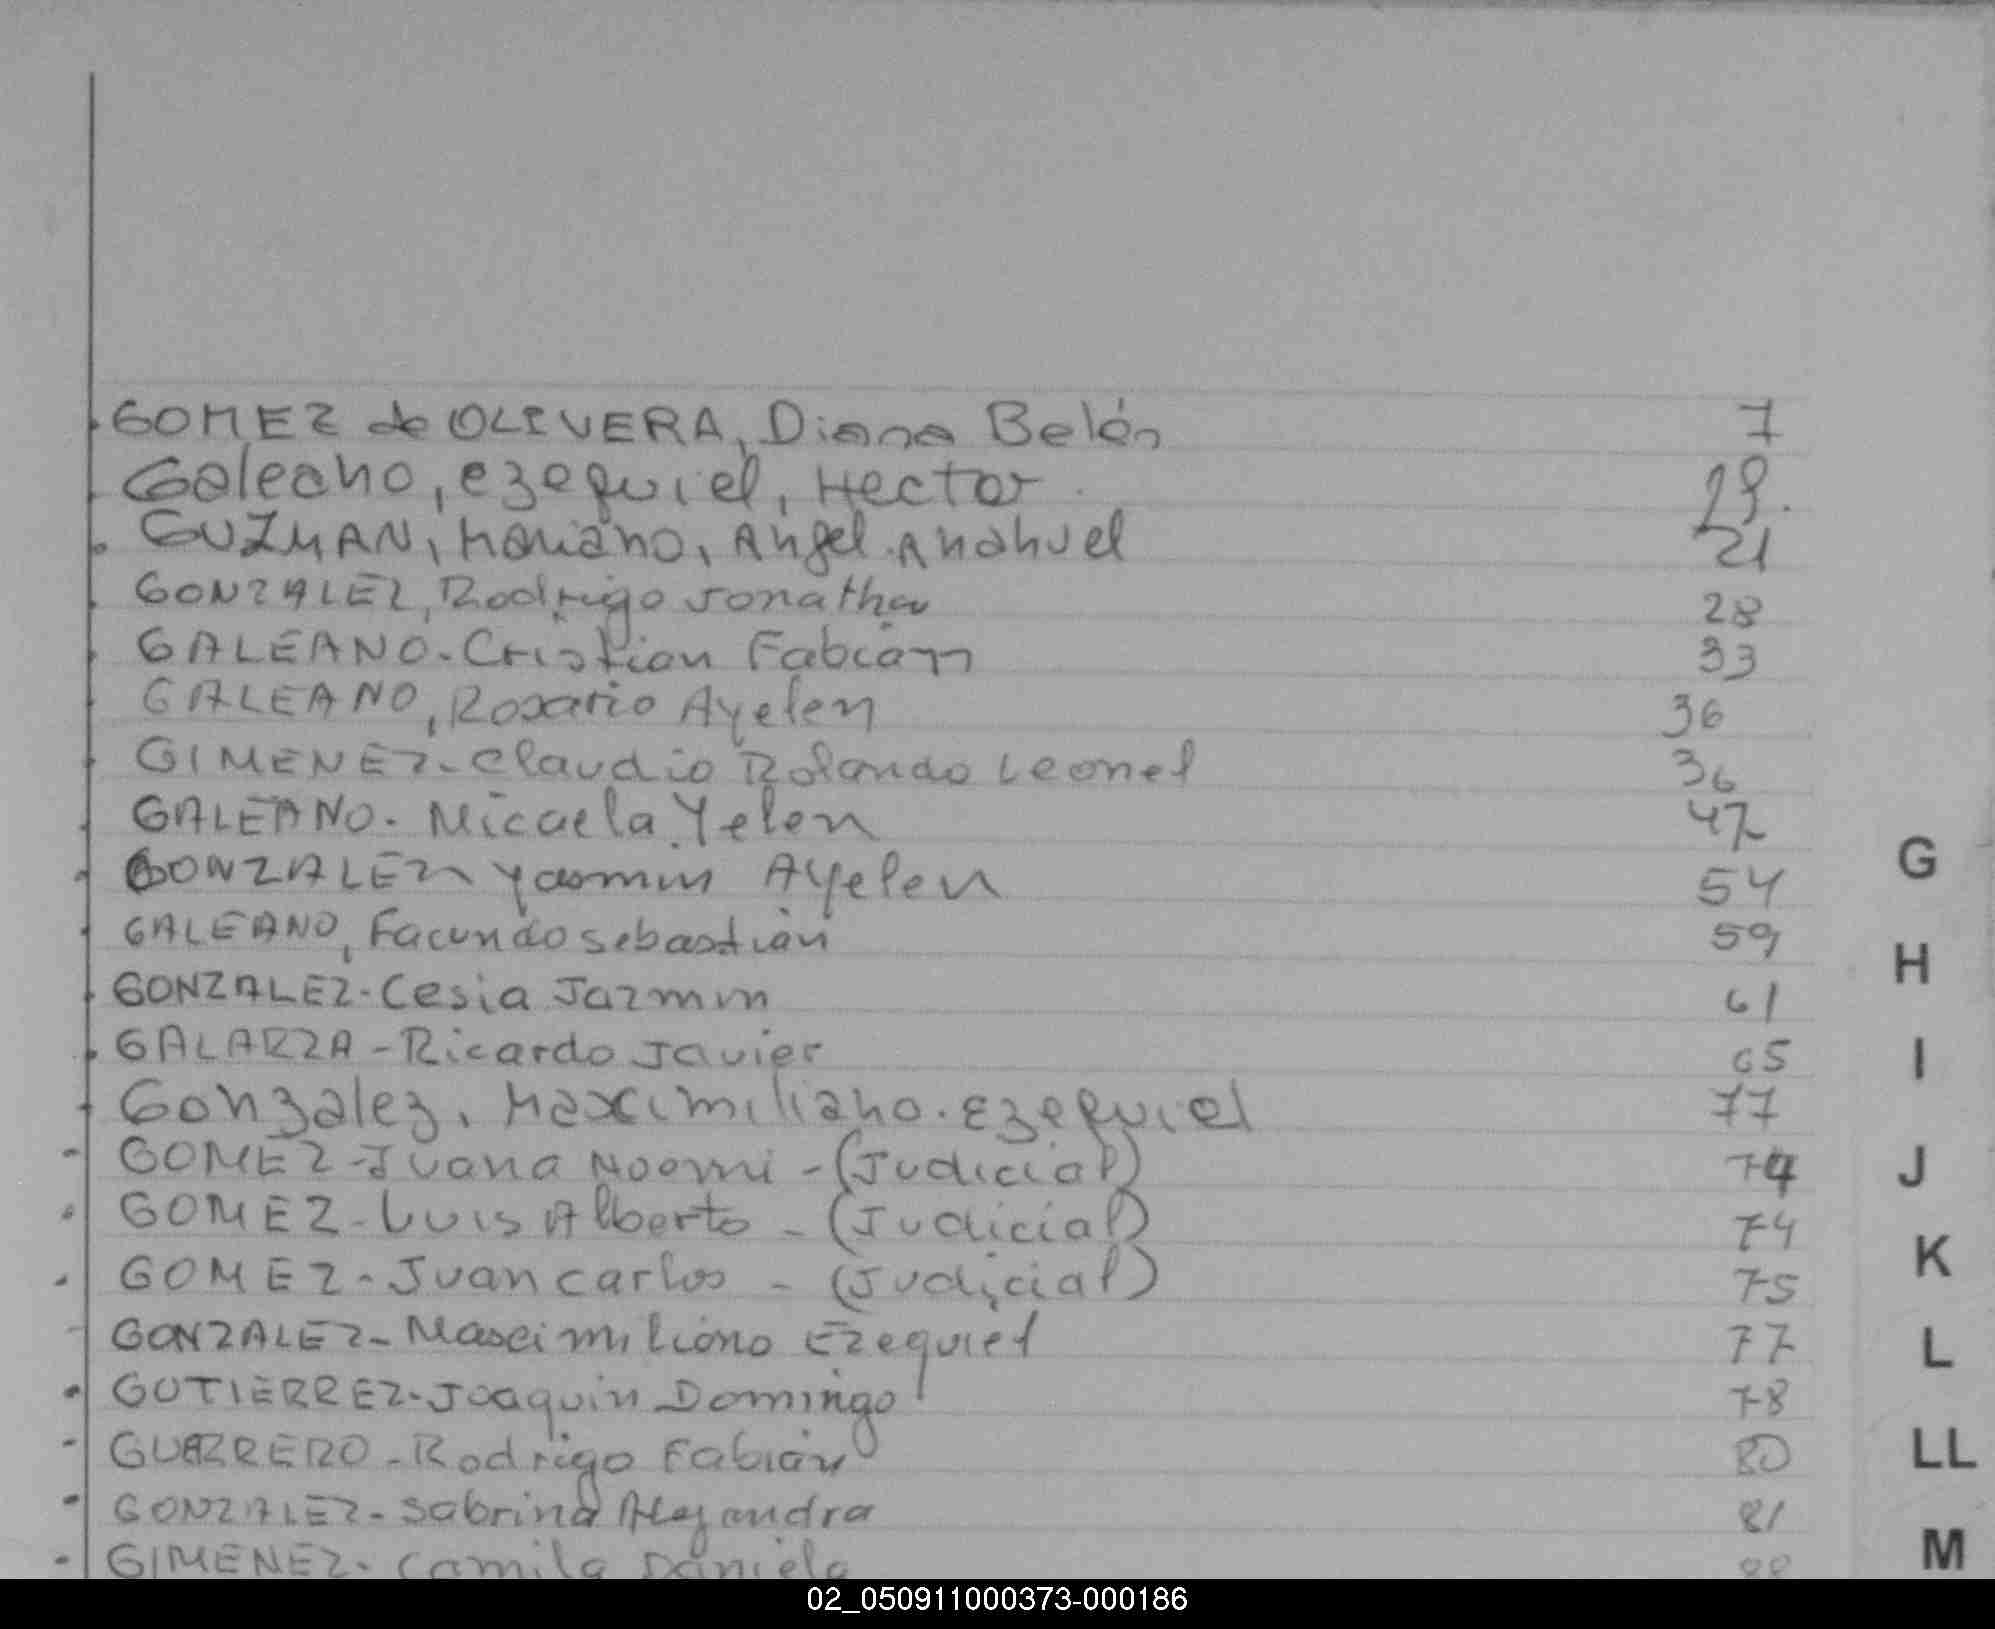 GOMEZ de OLIVERA, Diana Belén 7
Galeano, ezequiel, Hector. 29.
GUZMAN, Mariano, Angel. Anahuel 21
GONZALEZ, Rodrigo Jonathan 28
GALEANO. Cristian Fabián 33
GALEANO, Rosario Ayelen 36
GIMENEZ - Claudio Rolando Leonel 36
GALEANO. Micaela Yelen 47
GONZALEZ Yasmin Ayelen 54
GALEANO, Facundo Sebastián 59
G
H
GONZALEZ - Cesia Jazmin 61
GALARZA - Ricardo Javier 65
I
Gonzalez, Maximiliano. Ezequiel 77
GOMEZ - Juana Noemi - (Judicial) 74
J
GOMEZ - Luis Alberto - (Judicial) 74
GOMEZ - Juan carlos - (Judicial) 75
K
GONZALEZ - Maximiliano Ezequiel 77
L
GUTIERREZ - Joaquin Domingo 78
GUERRERO - Rodrigo Fabián 80
LL
GONZALEZ - Sabrina Alejandra 81
GIMENEZ - Camila Daniela
M
02_050911000373-000186